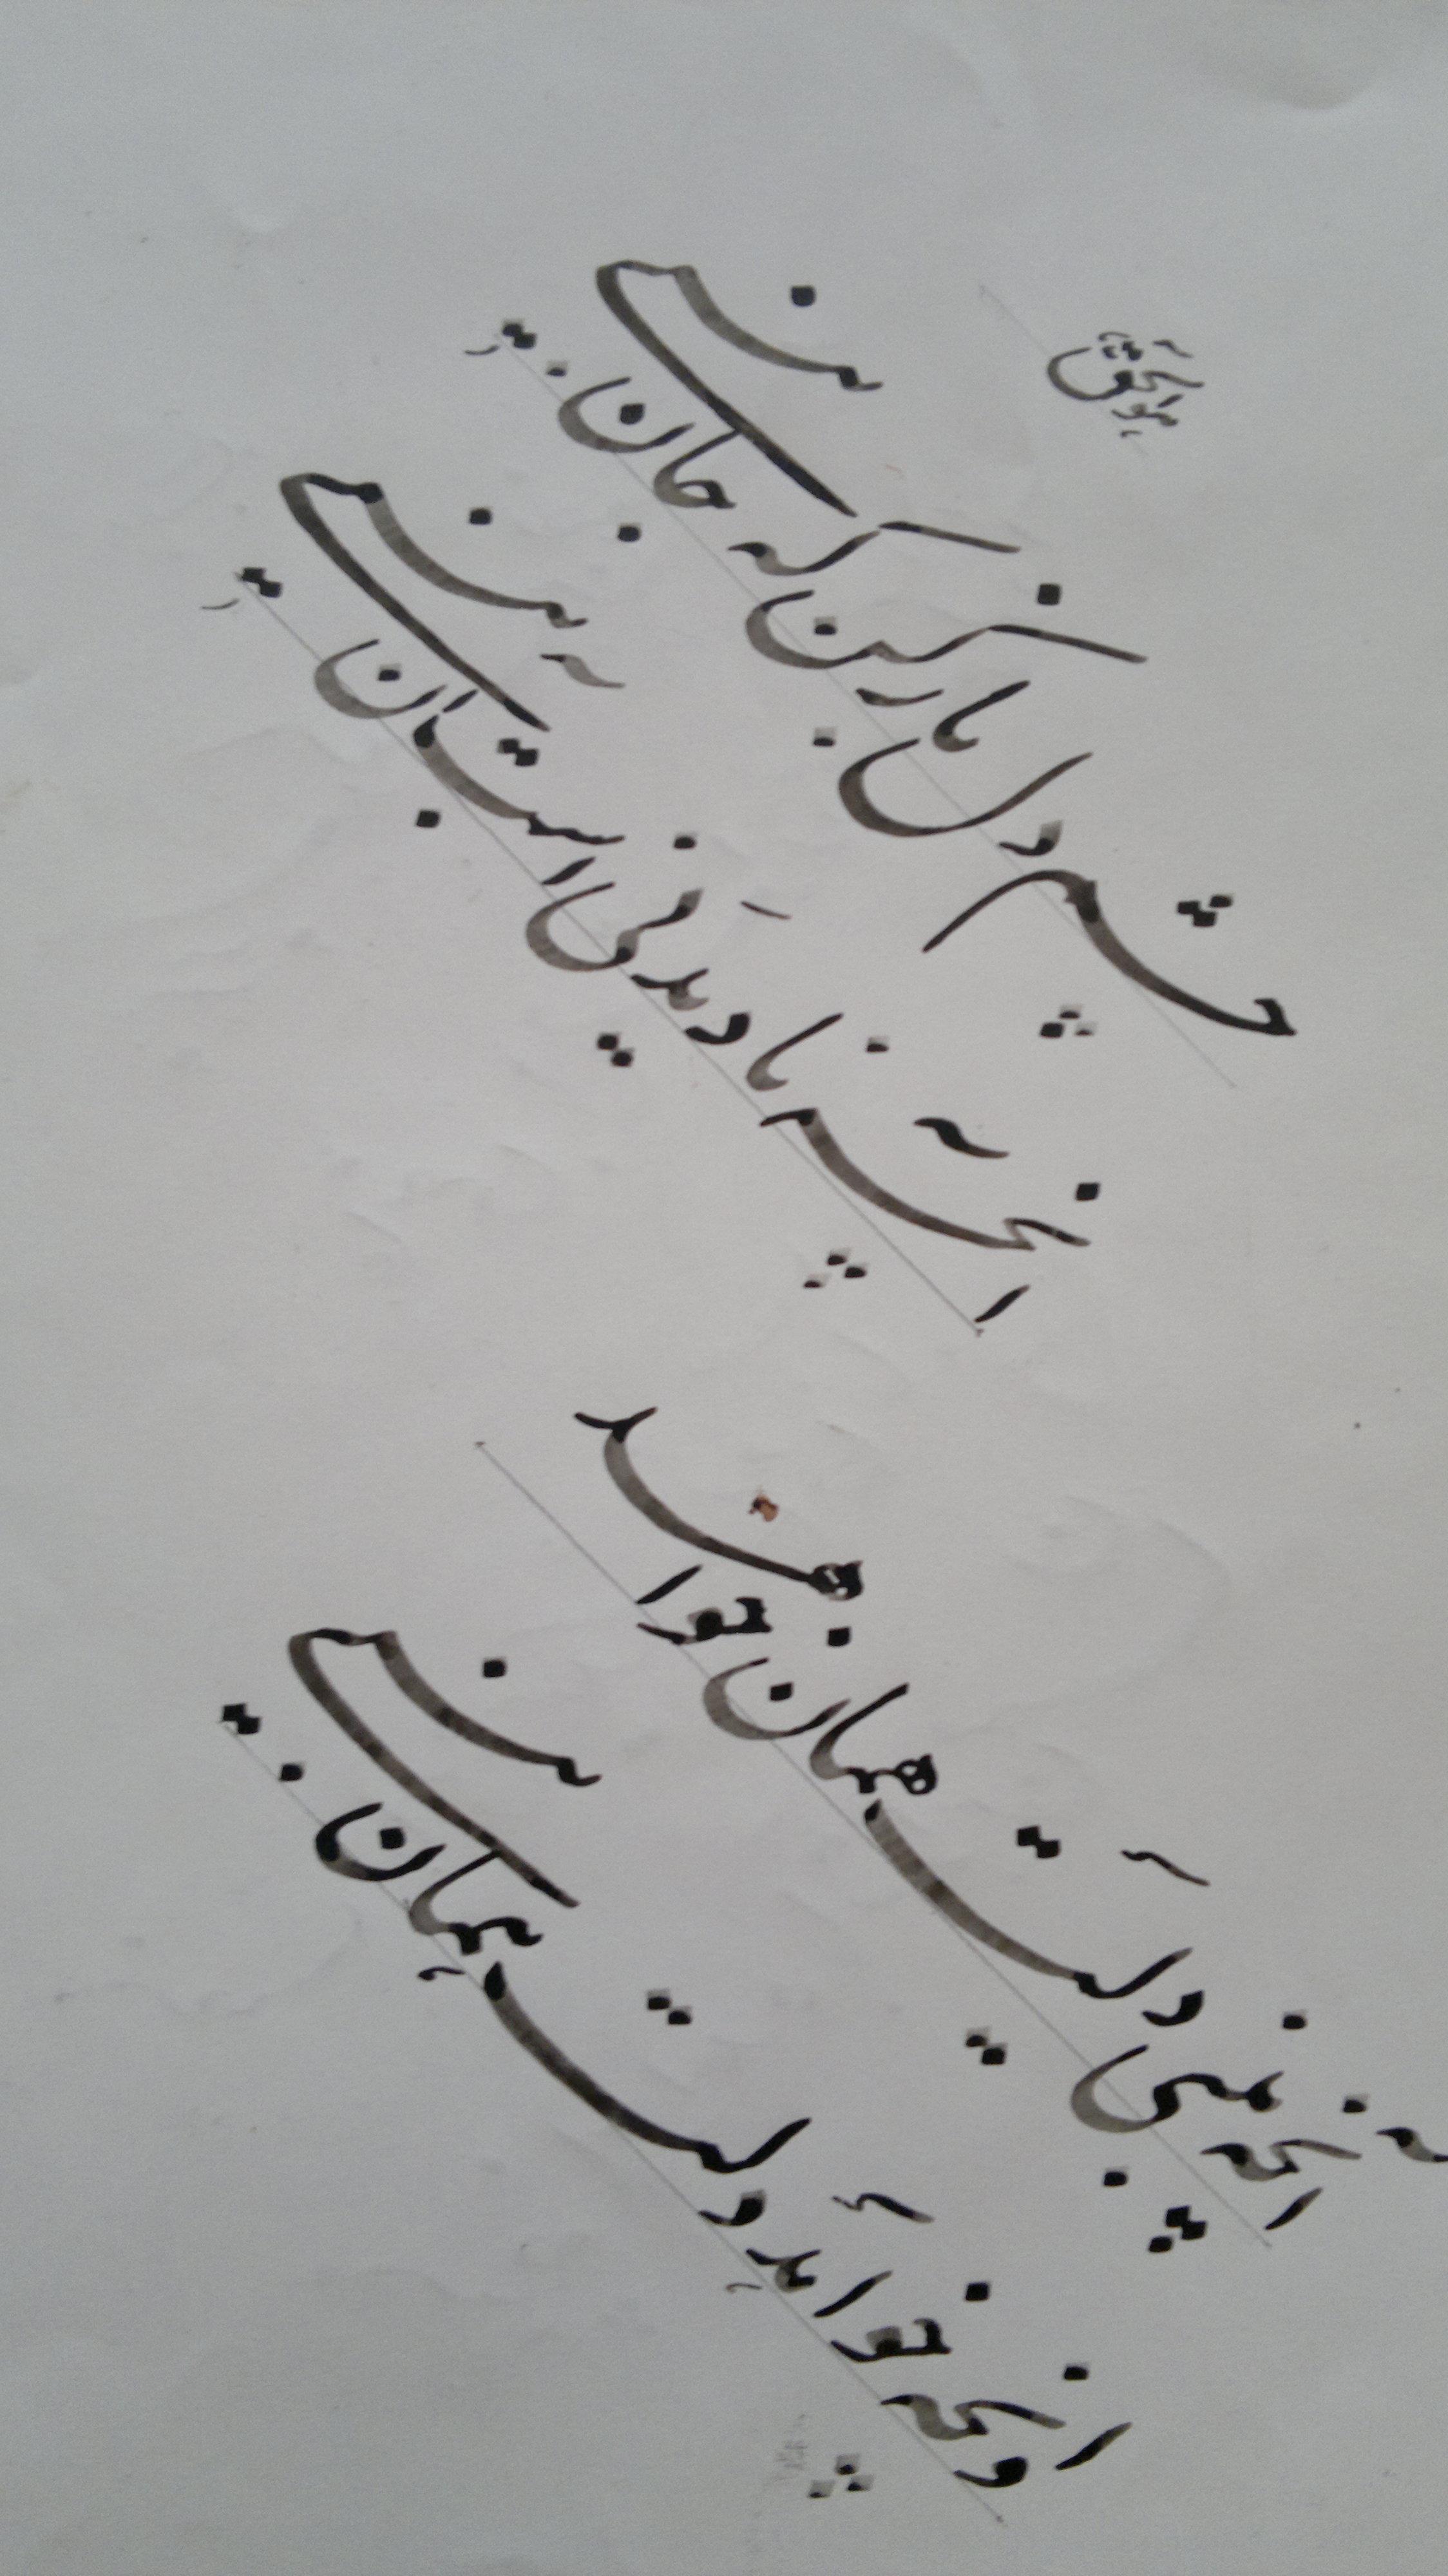 هوالحق
چشم دل باز کن که جان بینی
آنچه نادیدنی است آن بینی
آنچه بینی دلت همان خواهد
وانچه خواهد دلت همان بینی